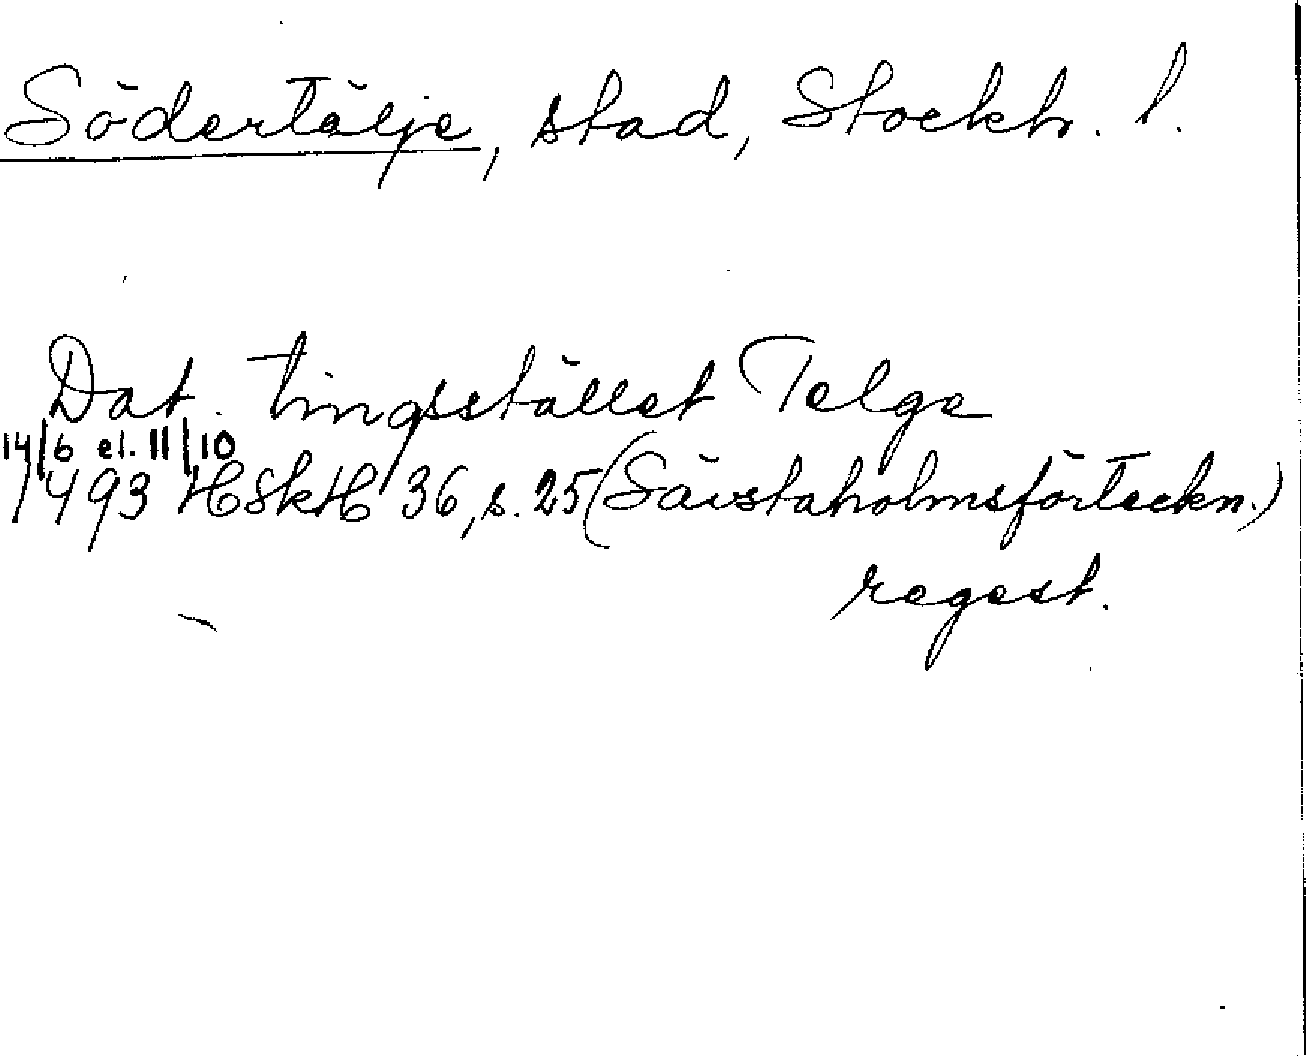 Södertälje, stad, Stockh. l.
Dat. tingsstället Telge
14/6 el. 11/10
1493 HSkH 36, s. 25 (Sävstaholmsförteckn.)
regest.